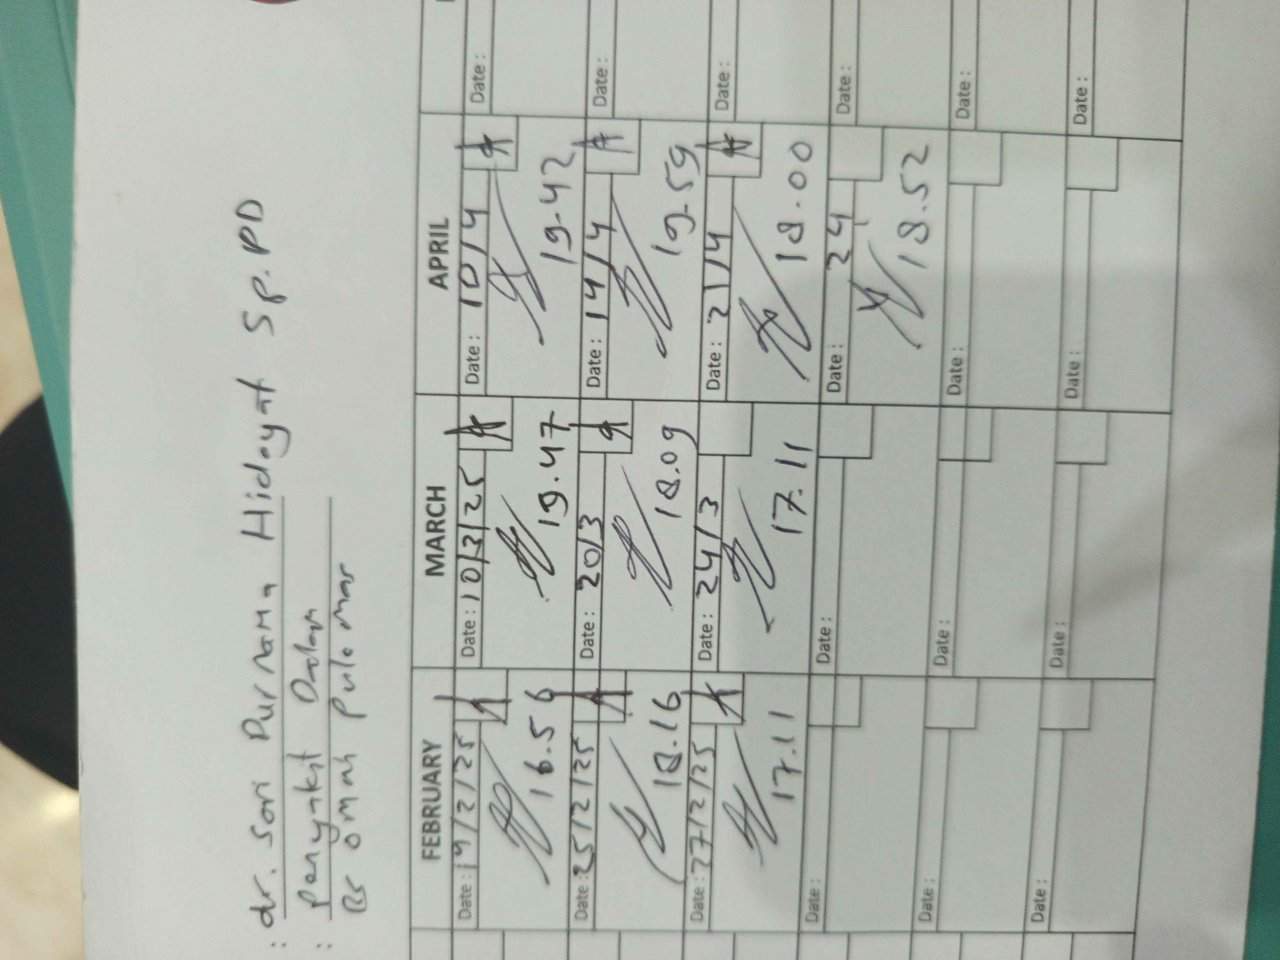 : dr. Sari Purnama Hidayat Sp.PD
: Penyakit Dalam
RS Omni Pulo Mas
FEBRUARY MARCH APRIL
Date : 19/2/25 Date : 10/3/25 Date : 10/4 Date :
16.56 19.47 19.42
Date : 25/2/25 Date : 20/3 Date : 14/4 Date :
18.16 18.09 19.59
Date : 27/2/25 Date : 24/3 Date : 21/4 Date :
17.11 17.11 18.00
Date : Date : Date : 24 Date :
18.52
Date : Date : Date : Date :
Date : Date : Date : Date :